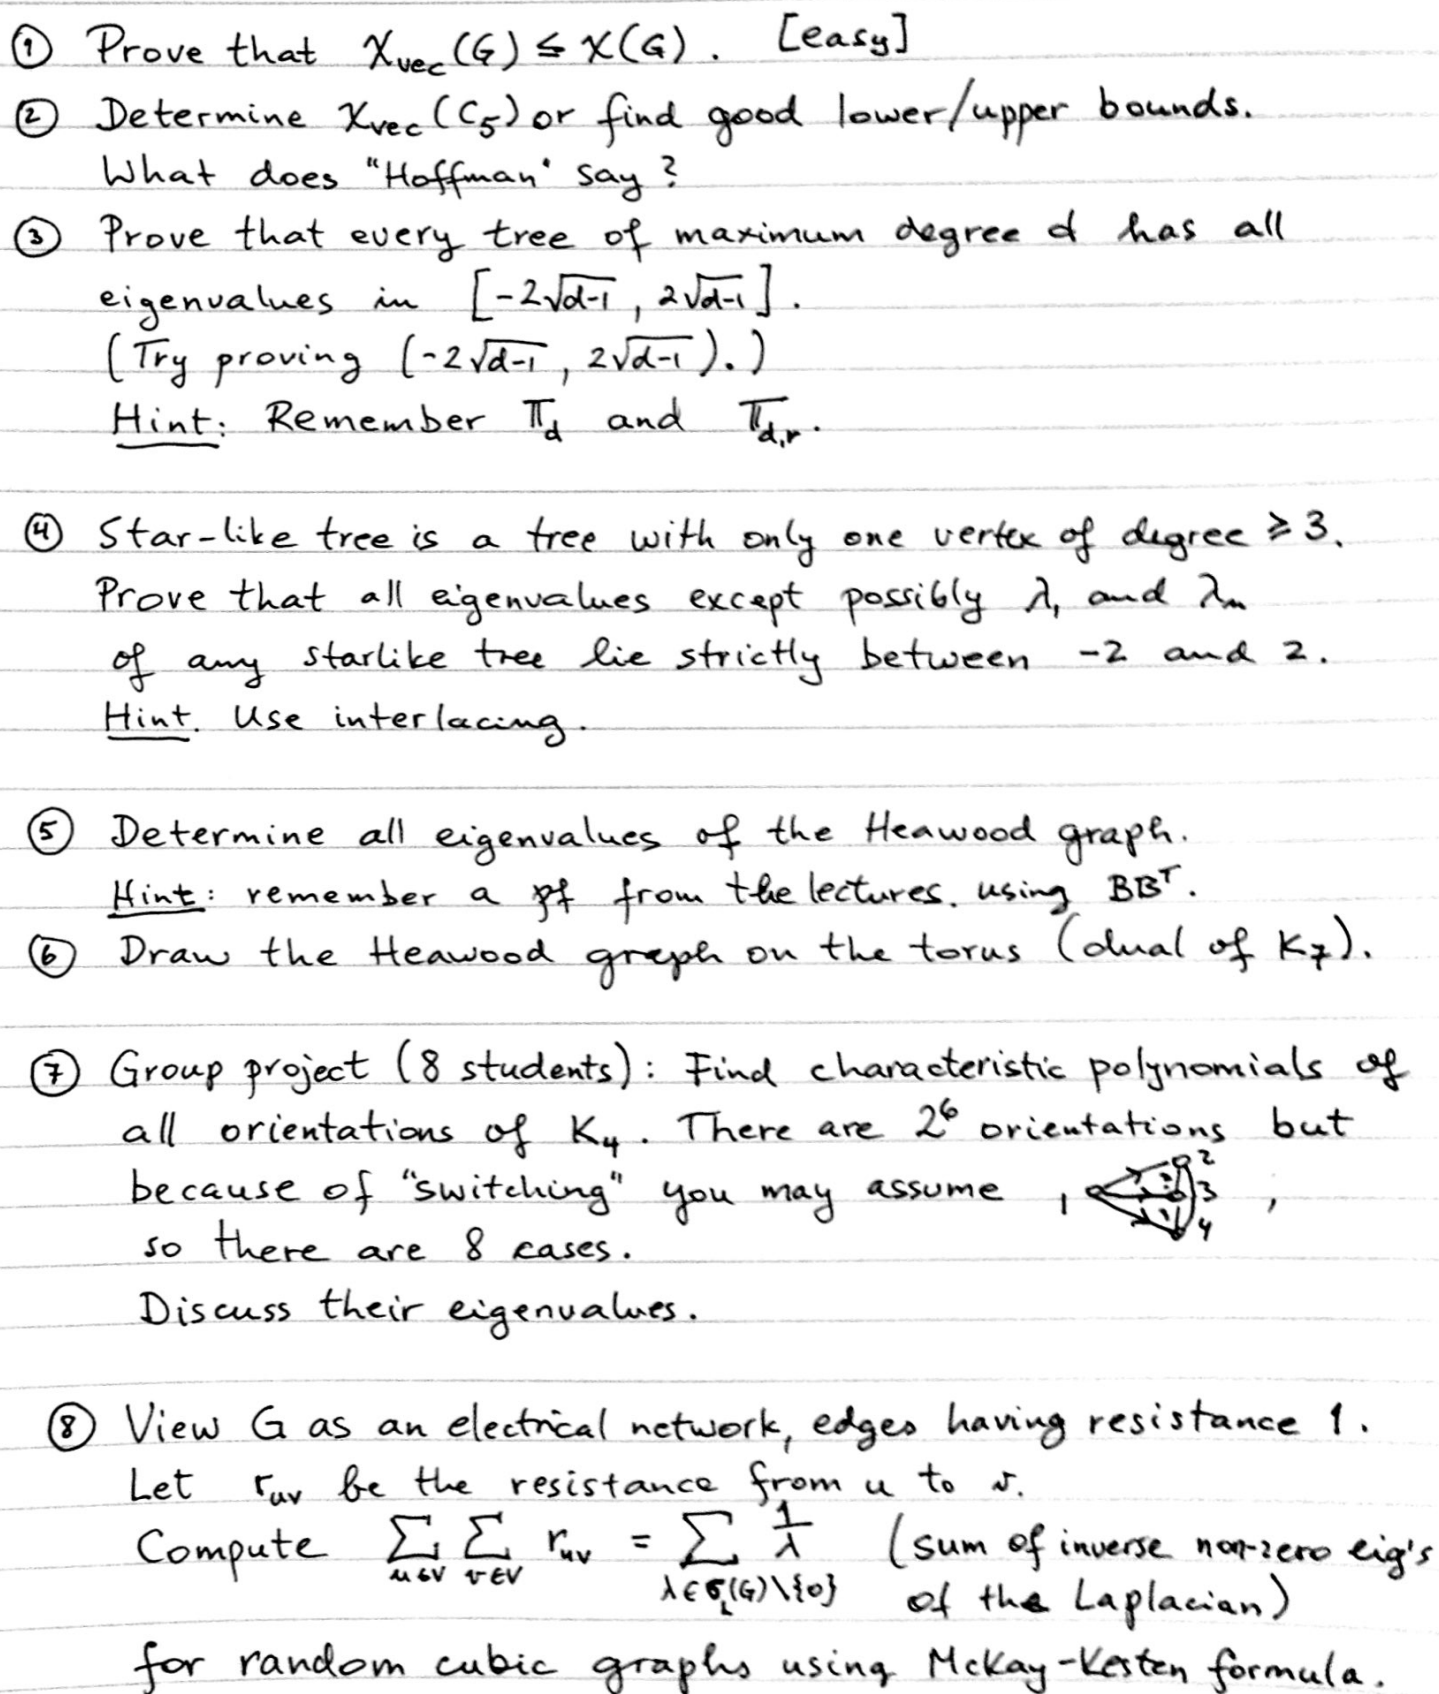 ① Prove that χ_vec(G) ≤ χ(G). [easy]
② Determine χ_vec(C₅) or find good lower/upper bounds.
What does "Hoffman" say?
③ Prove that every tree of maximum degree d has all
eigenvalues in [-2√d-1, 2√d-1].
(Try proving (-2√d-1, 2√d-1).)
Hint: Remember 𝕋_d and 𝕋_d,r.
④ Star-like tree is a tree with only one vertex of degree ≥ 3.
Prove that all eigenvalues except possibly λ₁ and λₙ
of any starlike tree lie strictly between -2 and 2.
Hint. Use interlacing.
⑤ Determine all eigenvalues of the Heawood graph.
Hint: remember a pf from the lectures. using BBᵀ.
⑥ Draw the Heawood graph on the torus (dual of K₇).
⑦ Group project (8 students): Find characteristic polynomials of
all orientations of K₄. There are 2⁶ orientations but
because of "switching" you may assume 1 2 3 4 ,
so there are 8 cases.
Discuss their eigenvalues.
⑧ View G as an electrical network, edges having resistance 1.
Let r_uv be the resistance from u to v.
Compute Σ_u∈V Σ_v∈V r_uv = Σ_λ∈σ_L(G)\{0} 1/λ (sum of inverse non-zero eig's
of the Laplacian)
for random cubic graphs using McKay-Kesten formula.